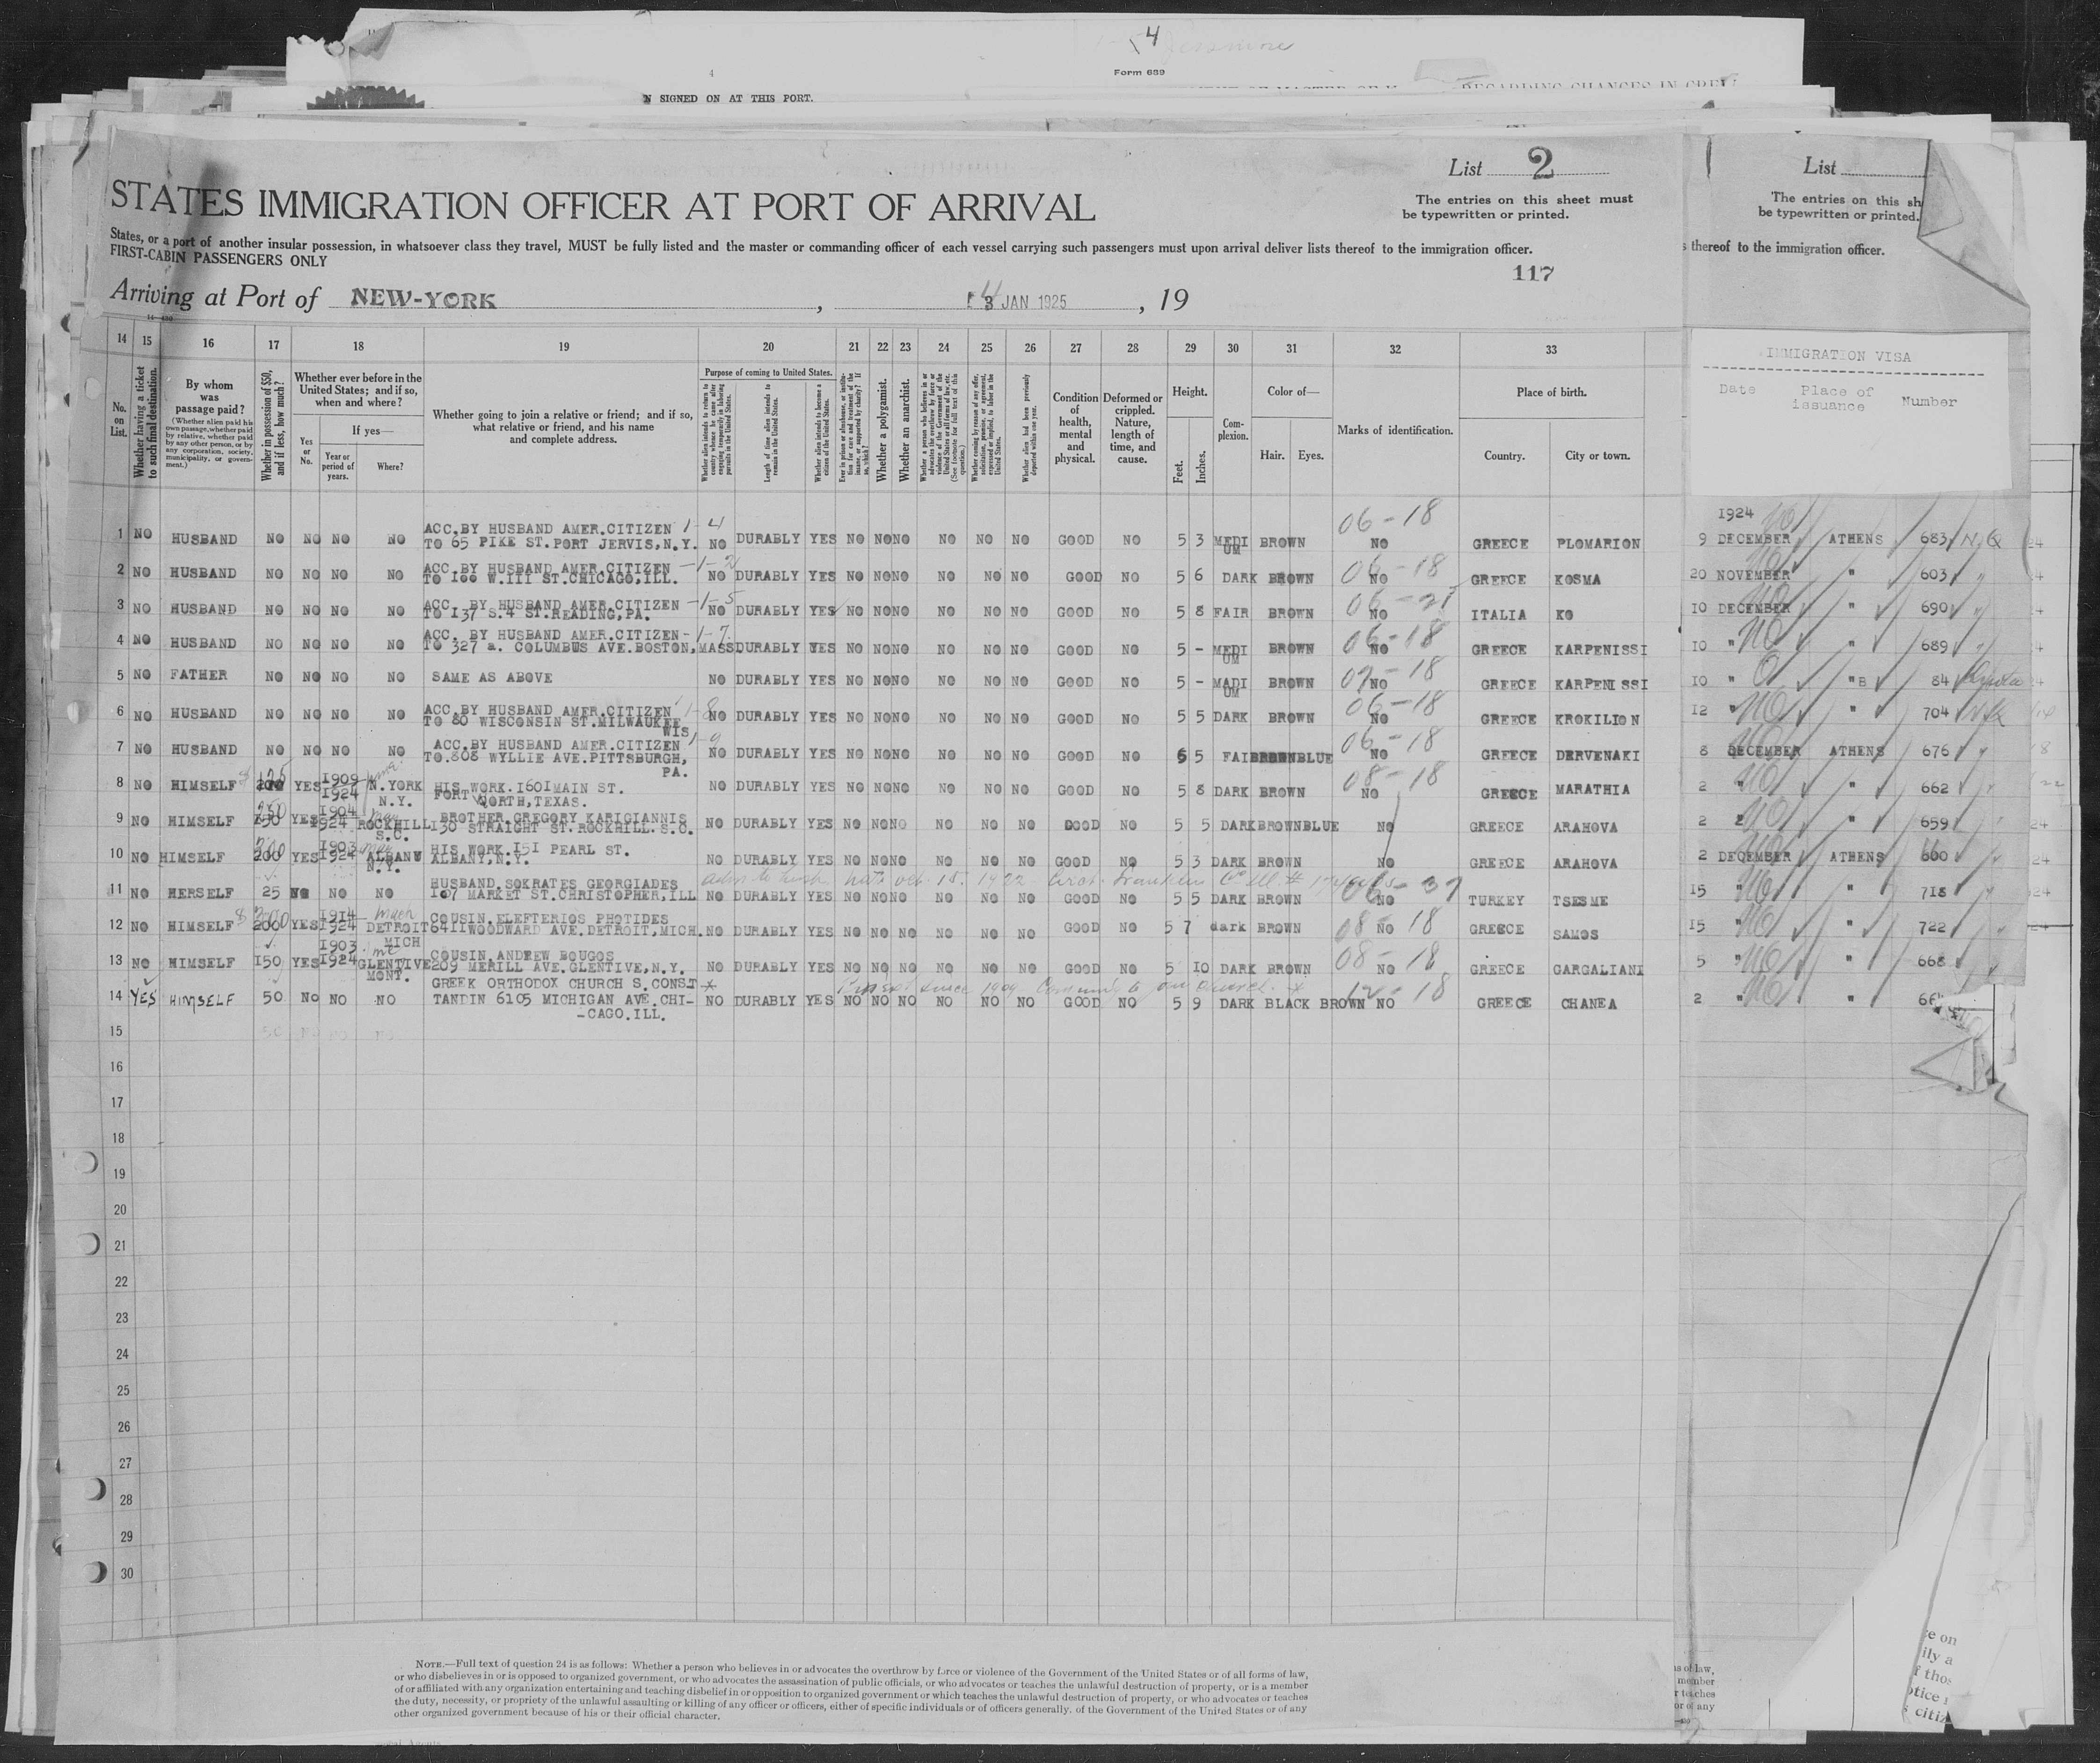 4
4
Form 689
N SIGNED ON AT THIS PORT.
REGARDING CHANGES IN CREW
List 2
The entries on this sheet must
be typewritten or printed.
List
The entries on this sh
be typewritten or printed.
STATES IMMIGRATION OFFICER AT PORT OF ARRIVAL
States, or a port of another insular possession, in whatsoever class they travel, MUST be fully listed and the master or commanding officer of each vessel carrying such passengers must upon arrival deliver lists thereof to the immigration officer.
s thereof to the immigration officer.
FIRST-CABIN PASSENGERS ONLY
117
Arriving at Port of NEW-YORK, 3 JAN 1925, 19
14 15 16 17 18 19 20 21 22 23 24 25 26 27 28 29 30 31 32 33
No. on List.
Whether having a ticket to such final destination.
By whom was passage paid?
(Whether alien paid his own passage, whether paid by relative, whether paid by any other person, or by any corporation, society, municipality, or government.)
Whether in possession of $50, and if less, how much?
Whether ever before in the United States; and if so, when and where?
Yes or No.
If yes—
Year or period of years.
Where?
Whether going to join a relative or friend; and if so, what relative or friend, and his name and complete address.
Purpose of coming to United States.
Whether alien intends to return to country whence he came after engaging temporarily in laboring pursuits in the United States.
Length of time alien intends to remain in the United States.
Whether alien intends to become a citizen of the United States.
Ever in prison or almshouse, or institution for care and treatment of the insane, or supported by charity? If so, which?
Whether a polygamist.
Whether an anarchist.
Whether a person who believes in or advocates the overthrow by force or violence of the Government of the United States or all forms of law, etc. (See footnote for full text of this question.)
Whether coming by reason of any offer, solicitation, promise, or agreement, expressed or implied, to labor in the United States.
Whether alien had been previously deported within one year.
Condition of health, mental and physical.
Deformed or crippled. Nature, length of time, and cause.
Height.
Feet. Inches.
Complexion.
Color of—
Hair. Eyes.
Marks of identification.
Place of birth.
Country. City or town.
IMMIGRATION VISA
Date Place of issuance Number
1924
1 NO HUSBAND NO NO NO NO ACC.BY HUSBAND AMER.CITIZEN 1-4
TO 65 PIKE ST.PORT JERVIS,N.Y. NO DURABLY YES NO NO NO NO NO NO GOOD NO 5 3 MEDIUM BROWN 06-18 NO GREECE PLOMARION 9 DECEMBER ATHENS 683
2 NO HUSBAND NO NO NO NO ACC.BY HUSBAND AMER.CITIZEN 1-2
TO 100 W.III ST.CHICAGO,ILL. NO DURABLY YES NO NO NO NO NO NO GOOD NO 5 6 DARK BROWN 06-18 NO GREECE KOSMA 20 NOVEMBER " 603
3 NO HUSBAND NO NO NO NO ACC. BY HUSBAND AMER.CITIZEN 1-5
TO 137 S.4 ST.READING,PA. NO DURABLY YES NO NO NO NO NO NO GOOD NO 5 8 FAIR BROWN NO ITALIA KO 10 DECEMBER " 690
4 NO HUSBAND NO NO NO NO ACC. BY HUSBAND AMER.CITIZEN 1-7
TO 327 a. COLUMBUS AVE.BOSTON,MASS DURABLY YES NO NO NO NO NO NO GOOD NO 5 - MEDIUM BROWN 06-18 NO GREECE KARPENISSI 10 " " 689
5 NO FATHER NO NO NO NO SAME AS ABOVE NO DURABLY YES NO NO NO NO NO NO GOOD NO 5 - MADIUM BROWN 07-18 NO GREECE KARPENISSI 10 " " 84
6 NO HUSBAND NO NO NO NO ACC.BY HUSBAND AMER.CITIZEN 1-8
TO 80 WISCONSIN ST.MILWAUKEE WIS NO DURABLY YES NO NO NO NO NO NO GOOD NO 5 5 DARK BROWN 06-18 NO GREECE KROKILION 12 " " 704
7 NO HUSBAND NO NO NO NO ACC.BY HUSBAND AMER.CITIZEN 1-9
TO.808 WYLLIE AVE.PITTSBURGH, PA. NO DURABLY YES NO NO NO NO NO NO GOOD NO 5 5 FAI BROWN BLUE 06-18 NO GREECE DERVENAKI 8 DECEMBER ATHENS 676
8 NO HIMSELF 125 200 YES 1909 1924 N.YORK N.Y. HIS WORK.1601 MAIN ST.
FORT WORTH,TEXAS. NO DURABLY YES NO NO NO NO NO NO GOOD NO 5 8 DARK BROWN 08-18 NO GREECE MARATHIA 2 " 662
9 NO HIMSELF 250 YES 1904 1924 ROCKHILL S.C. BROTHER GREGORY KARIGIANNIS
130 STRAIGHT ST.ROCKHILL.S.C. NO DURABLY YES NO NO NO NO NO NO GOOD NO 5 5 DARK BROWN BLUE NO GREECE ARAHOVA 2 659
10 NO HIMSELF 200 YES 1903 1924 ALBANY N.Y. HIS WORK.151 PEARL ST.
ALBANY,N.Y. NO DURABLY YES NO NO NO NO NO NO GOOD NO 5 3 DARK BROWN NO GREECE ARAHOVA 2 DECEMBER ATHENS 660
11 NO HERSELF 25 NO NO NO HUSBAND.SOKRATES GEORGIADES
107 MARKET ST.CHRISTOPHER,ILL NO DURABLY YES NO NO NO NO NO NO GOOD NO 5 5 DARK BROWN NO TURKEY TSESME 15 " " 718
12 NO HIMSELF 200 YES 1914 1924 DETROIT MICH COUSIN ELEFTERIOS PHOTIDES
6411 WOODWARD AVE.DETROIT,MICH. NO DURABLY YES NO NO NO NO NO NO GOOD NO 5 7 dark BROWN 08-18 NO GREECE SAMOS 15 " " 722
13 NO HIMSELF 150 YES 1903 1924 GLENTIVE MONT. COUSIN ANDREW BOUGOS
209 MERILL AVE.GLENTIVE,N.Y. NO DURABLY YES NO NO NO NO NO NO GOOD NO 5 10 DARK BROWN 08-18 NO GREECE GARGALIANI 5 " " 668
14 YES HIMSELF 50 NO NO NO GREEK ORTHODOX CHURCH S.CONST
TANDIN 6105 MICHIGAN AVE.CHI-
-CAGO.ILL. NO DURABLY YES NO NO NO NO NO NO GOOD NO 5 9 DARK BLACK BROWN 12-18 NO GREECE CHANEA 2 " "
15
16
17
18
19
20
21
22
23
24
25
26
27
28
29
30
NOTE.—Full text of question 24 is as follows: Whether a person who believes in or advocates the overthrow by force or violence of the Government of the United States or of all forms of law,
or who disbelieves in or is opposed to organized government, or who advocates the assassination of public officials, or who advocates or teaches the unlawful destruction of property, or is a member
of or affiliated with any organization entertaining and teaching disbelief in or opposition to organized government or which teaches the unlawful destruction of property, or who advocates or teaches
the duty, necessity, or propriety of the unlawful assaulting or killing of any officer or officers, either of specific individuals or of officers generally. of the Government of the United States or of any
other organized government because of his or their official character.